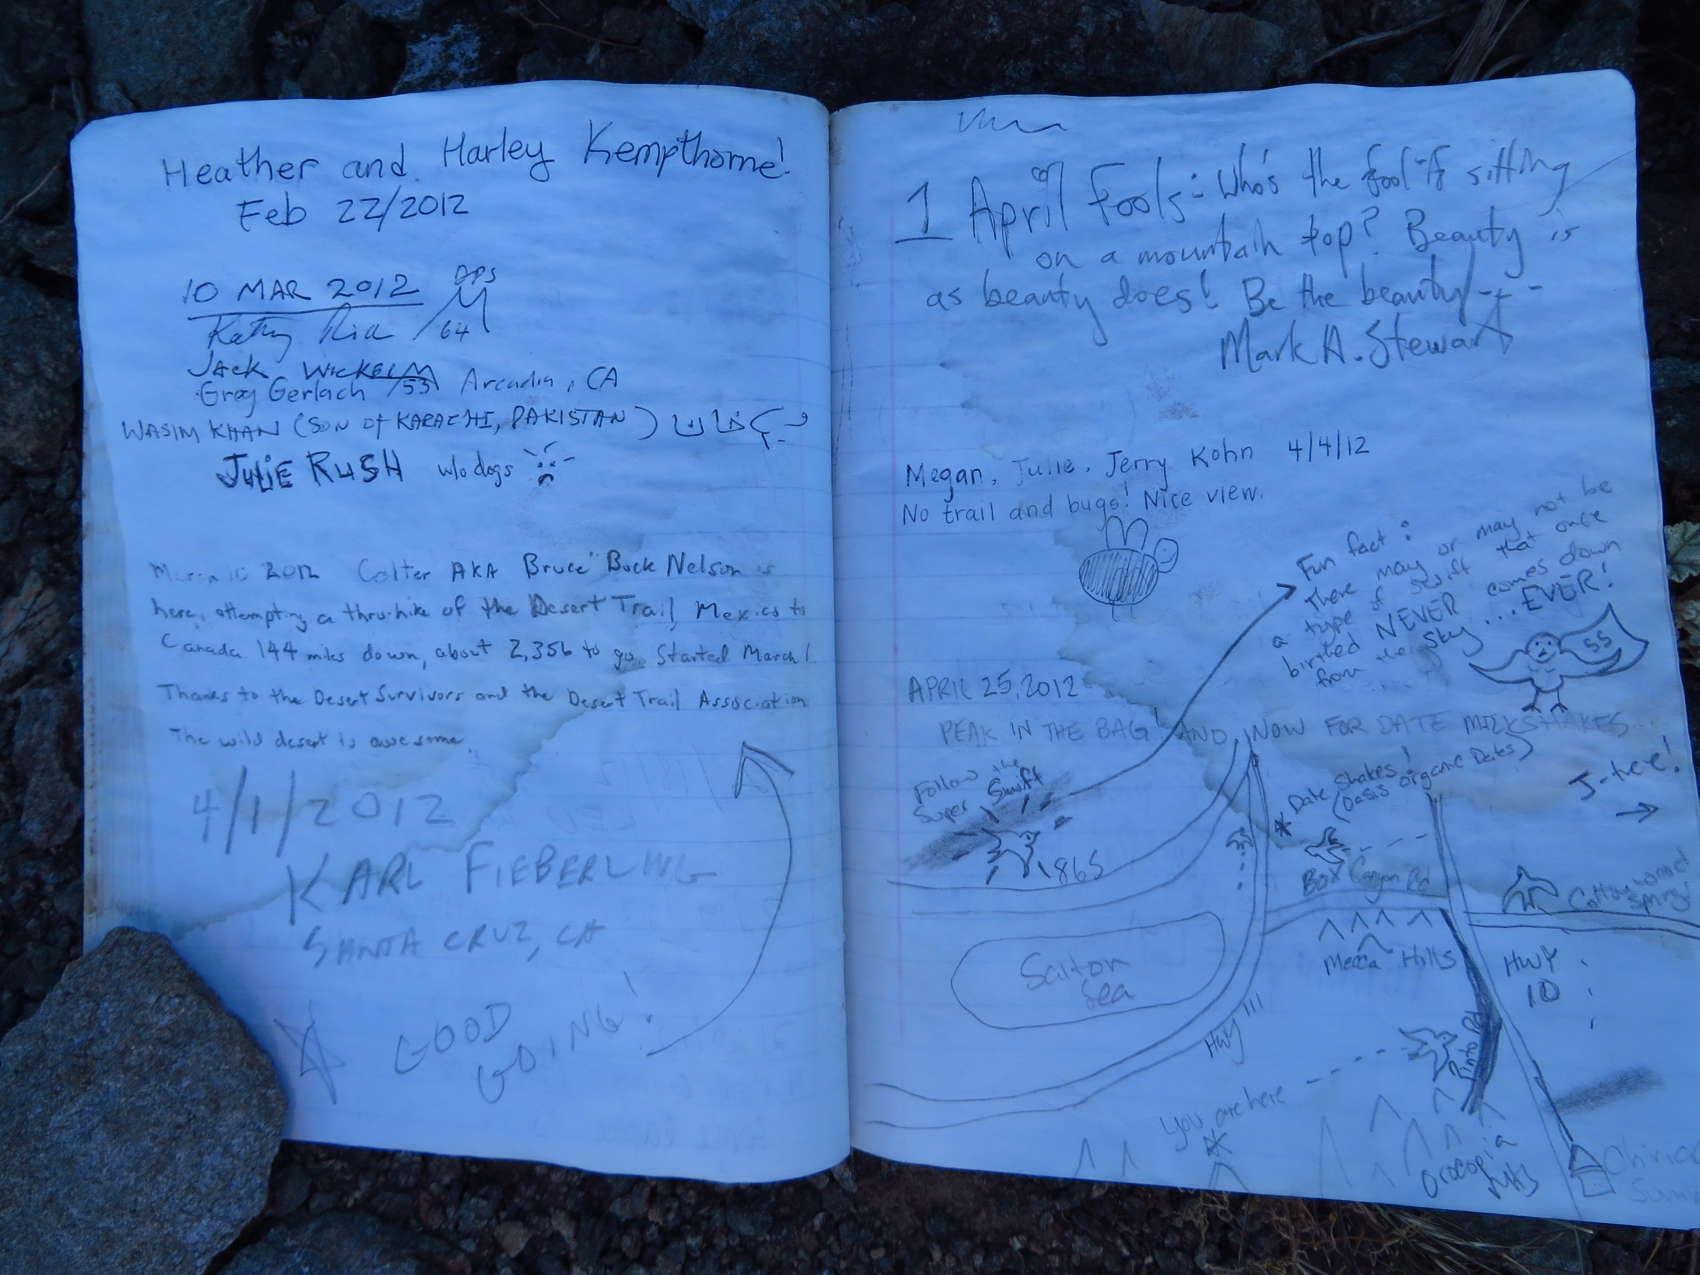 Heather and Harley Kempthorne!
Feb 22/2012
10 MAR 2012 DPS
Kathy Rich /64
JACK WICKELM
Greg Gerlach /55 Arcadia, CA
WASIM KHAN (SON of KARACHI, PAKISTAN)
JULIE RUSH w/o dogs
March 10 2012 Colter AKA Bruce "Buck" Nelson is
here, attempting a thru-hike of the Desert Trail, Mexico to
Canada 144 miles down, about 2,356 to go. Started March 1
Thanks to the Desert Survivors and the Desert Trail Association
The wild desert is awesome.
4/1/2012
KARL FIEBERLING
SANTA CRUZ, CA
GOOD
GOING!
1 April Fools: Who's the fool if sitting
on a mountain top? Beauty is
as beauty does! Be the beauty - - -
Mark A. Stewart
Megan, Julie, Jerry Kohn 4/4/12
No trail and bugs! Nice view.
Fun fact:
There may or may not be
a type of swift that once
birthed NEVER comes down
from the sky ... EVER!
55
APRIL 25, 2012
PEAK IN THE BAG! AND NOW FOR DATE MILKSHAKES...
Follow the
Super Swift
1865
* Date Shakes!
(Oasis Organic Dates)
J-tree!
Box Canyon Rd
Cottonwood
Springs
Salton
Sea
Mecca Hills
HWY
10
Hwy 111
Pinto Rd
You are here
Orocopia
Mts